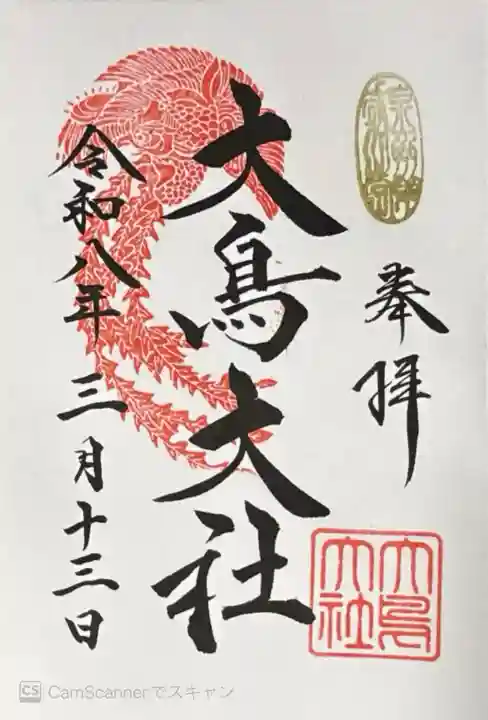 奉拝
大鳥大社
令和八年三月十三日
大鳥大社
CS CamScannerでスキャン